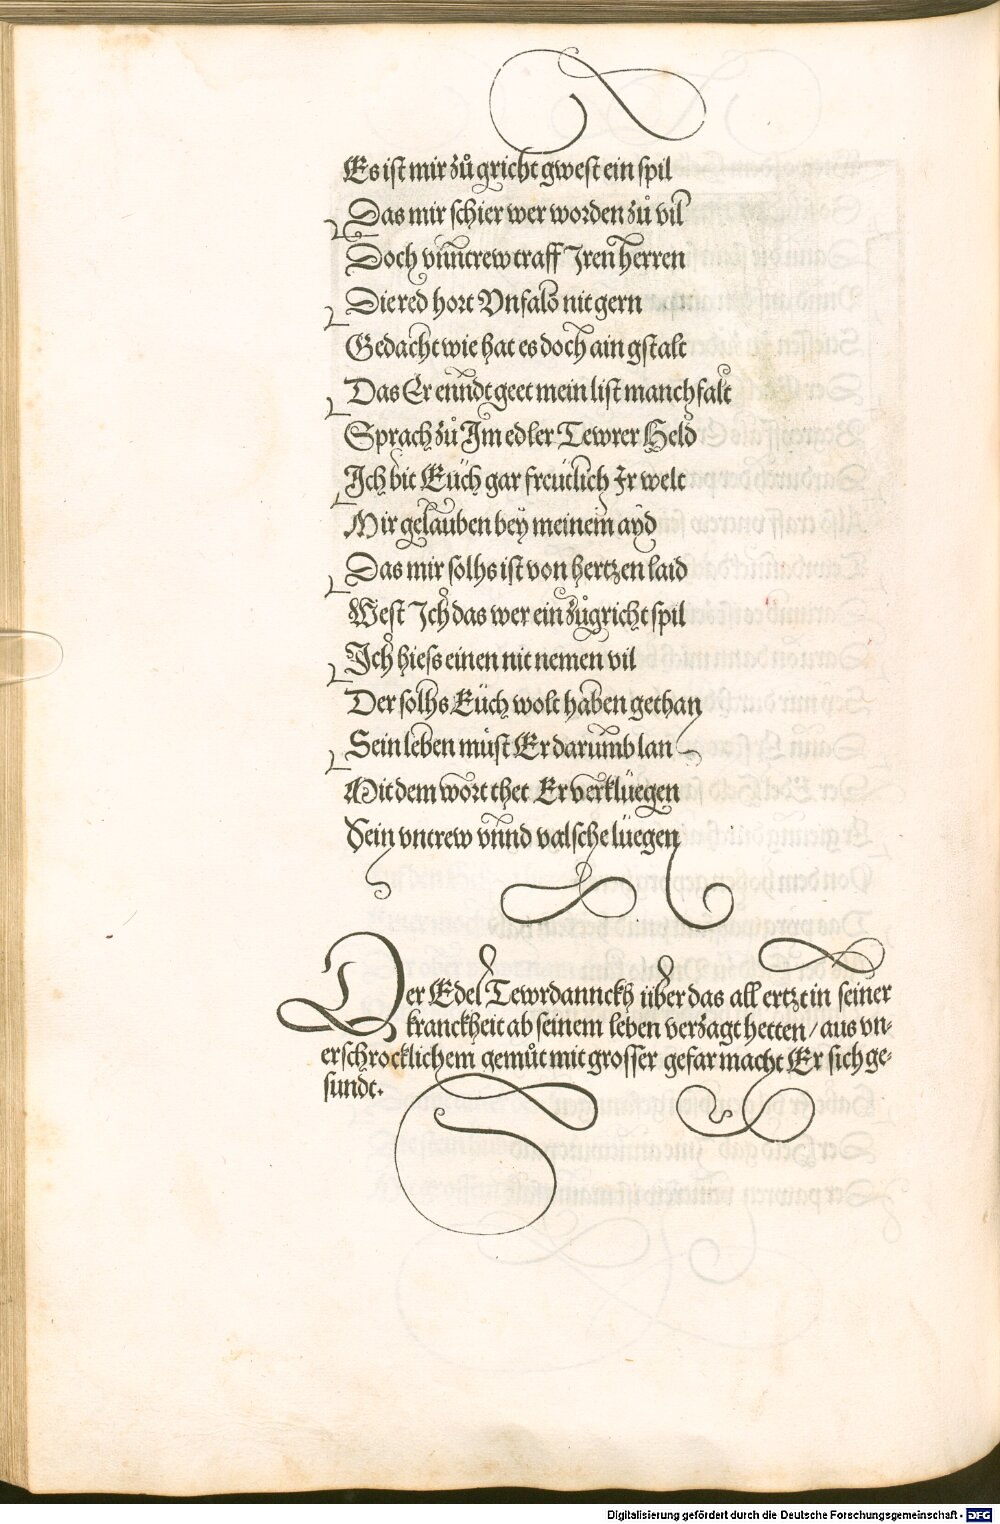 Es ist mir zů gricht gwest ein spil
Das mir schier wer worden zů vil
Doch vnntrew traff Iren herren
Die red hort Vnfalo nit gern
Gedacht wie hat es doch ain gstalt
Das Er enndt geet mein list manchfalt
Sprach zů Im edler Tewrer Held
Ich bit Eüch gar freütlich Ir welt
Mir gelauben bey meinem ayd
Das mir solhs ist von hertzen laid
West Ich das wer ein zůgricht spil
Ich hiess einen nit nemen vil
Der solhs Eüch wolt haben gethan
Sein leben müst Er darumb lan
Mit dem wort thet Er verklüegen
Sein vntrew vnnd valsche lüegen
Der Edel Tewrdannckh über das all ertzt in seiner
kranckheit ab seinem leben verzagt hetten / aus vn-
erschrocklichem gemůt mit grosser gefar macht Er sich ge-
sundt.
Digitalisierung gefördert durch die Deutsche Forschungsgemeinschaft - DFG